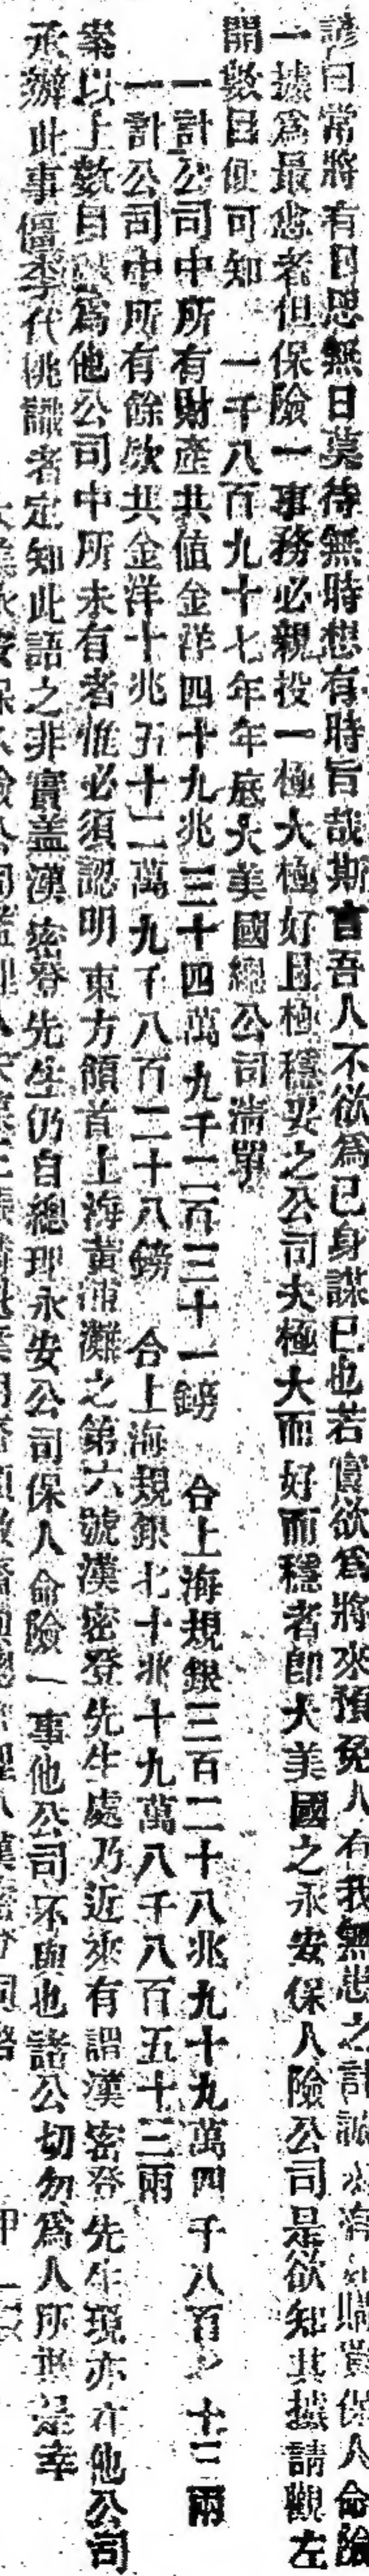 諺曰常將有日思無日莫待無時想有時旨哉斯言吾人不欲爲己身謀已也若實欲爲將來預免人有我無悲之計誠購買保人命險
一據爲最急者但保險一事務必親投一極大極好且極穩妥之公司夫極大而好而穩者卽大美國之永安保人險公司是欲知其據請觀左
開數目便可知 一千八百九十七年年底大美國總公司淸單
一計公司中所有財產共值金洋四十九兆三十四萬九千二百三十一鎊 合上海規銀三百二十八兆九十九萬四千八百七十三兩
一計公司中所有餘欵共金洋十兆五十二萬九千八百二十八鎊 合上海規銀七十兆十九萬八千八百五十三兩
案以上數目爲他公司中所未有者惟必須認明東方領首上海黃浦灘之第六號漢密登先生處乃近來有謂漢密登先生現亦在他公司
承辦此事僵李代桃識者定知此語之非實盖漢密登先生仍自總理永安公司保人命險一事他公司不與也諸公切勿爲人所惑是幸